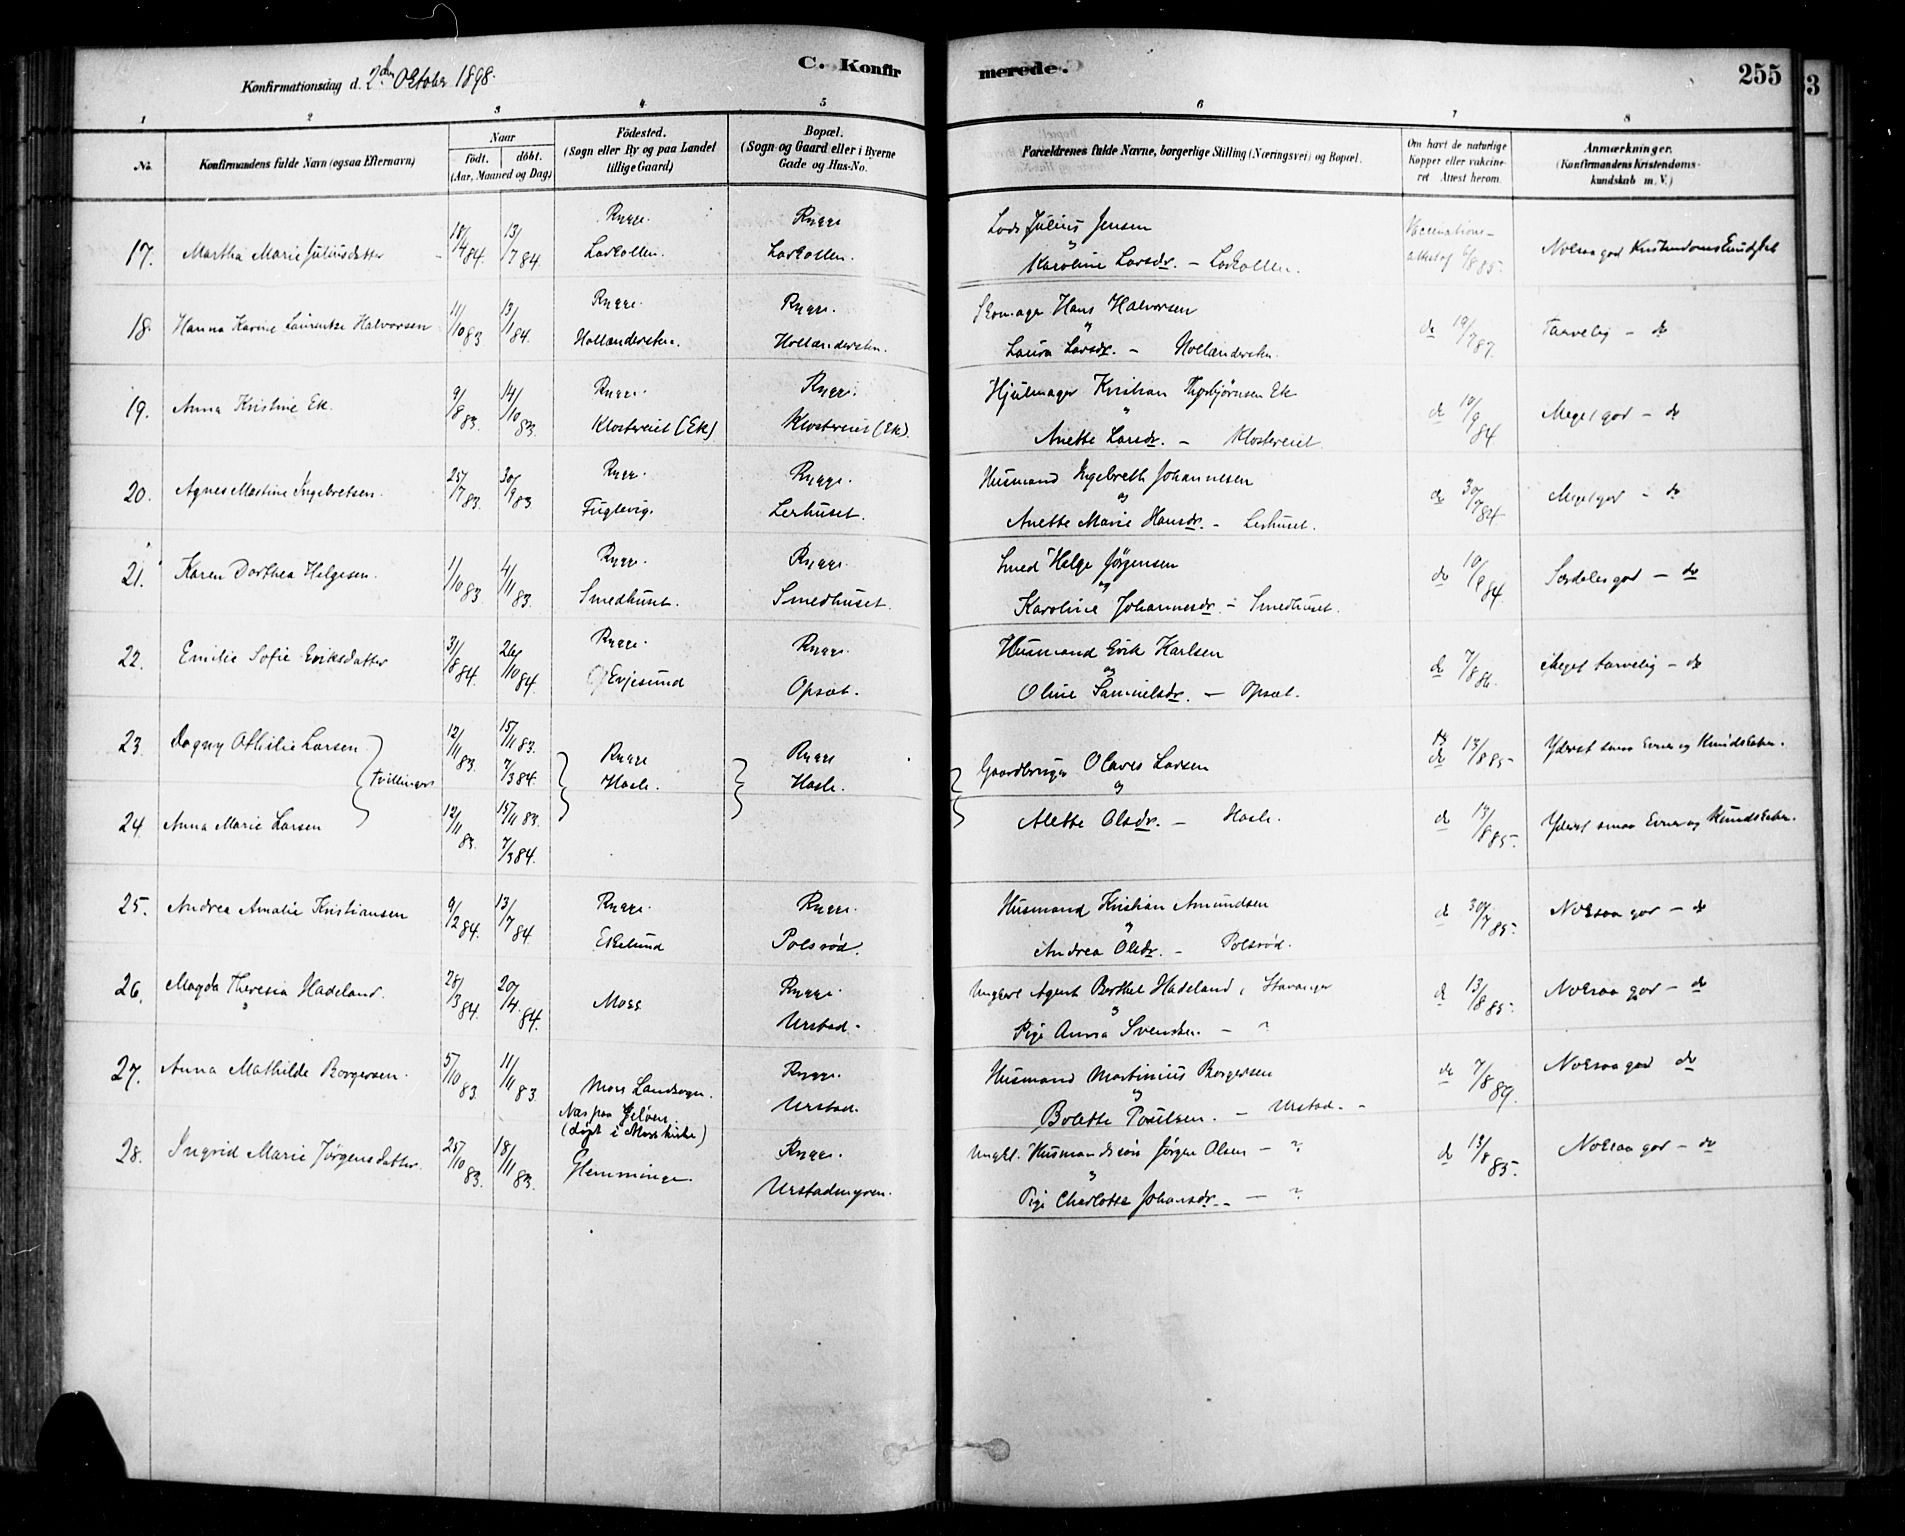 Konfirmationsdag d. 2den Oktober 1898.
C. Konfirmerede.
255
1 2 3 4 5 6 7 8
No. Konfirmandens fulde Navn (ogsaa Efternavn) Naar født. døbt. (Aar, Maaned og Dag) Fødested. (Sogn eller By og paa Landet tillige Gaard) Bopæl. (Sogn og Gaard eller i Byerne Gade og Hus-No. Forældrenes fulde Navne, borgerlige Stilling (Næringsvei) og Bopæl. Om havt de naturlige Kopper eller vakcineret Attest herom. Anmærkninger. (Konfirmandens Kristendomskundskab m. V.)
17. Martha Marie Juliusdatter 18/4 84. 13/7 84. Rygge. Larkollen. Rygge. Larkollen. Lods Julius Jensen
og Karoline Larsdr. – Larkollen. Vaccinationsattest af 6/8 85. Noksaa god Kristendomskundskab
18. Hanna Karine Laurentze Halvorsen 11/10 83. 13/1 84. Rygge. Hollendersten. Rygge. Hollendersten. Skomager Hans Halvorsen
og Laura Larsdr. – Hollenderstn. do 19/7 87. Tarvelig – do
19. Anna Kristine Ek. 9/8 83. 14/10 83. Rygge. Klostereiet (Ek) Rygge. Klostereiet (Ek). Hjulmager Kristian Thorbjørnsen Ek
og Anette Larsdr. – Klostereiet. do 10/9 84 Meget god – do
20. Agnes Martine Ingebretsen. 25/7 83. 30/9 83 Rygge. Fuglevig. Rygge. Lerhuset. Husmand Ingebreth Johannesen
og Anette Marie Hansdr. – Lerhuset. do 30/7 84 Meget god – do
21. Karen Dorthea Helgesen. 1/10 83. 4/11 83. Rygge. Smedhuset. Rygge. Smedhuset. Smed Helge Jørgensen
og Karoline Johannesdr. – Smedhuset. do 10/9 84. Særdeles god – do
22. Emilie Sofie Eriksdatter 31/8 84. 26/10 84. Rygge. Evjesund Rygge. Opsæt. Husmand Erik Karlsen
og Oline Samuelsdr. – Opsæt. do 7/8 86. Meget tarvelig – do
23. Dagny Othilie Larsen Tvillinger 12/11 83. 15/11 83. 7/3 84. Rygge Hasle. Rygge Hasle. Gaardbruger Olaves Larsen do 13/8 85 Yderst smaa Evner og Kundskaber.
24. Anna Marie Larsen 12/11 83. 15/11 83. 7/3 84. og Alette Olsdr. – Hasle. do 13/8 85. Yderst smaa Evner og Kundskaber.
25. Andrea Amalie Kristiansen 9/2 84. 13/7 84. Rygge. Ekelund Rygge. Polsrød. Husmand Kristian Amundsen
og Andrea Olsdr. – Polsrød. do 30/7 85. Noksaa god – do
26. Magda Theresia Hadeland. 28/3 84. 20/4 84. Moss Rygge. Urstad. Ungkarl Agent Berthel Hadeland, Stavanger
og Pige Anna Svensken. – " do 13/8 85. Noksaa god – do
27. Anna Mathilde Borgersen. 5/10 83. 11/11 83. Moss Landsogn. Næs paa Jeløen. (døpt i Moss kirke) Rygge. Urstad. Husmand Martinius Borgersen
og Bolette Poulsen. – Urstad. – do 7/8 89. Noksaa god do
28. Ingrid Marie Jørgensdatter. 25/10 83. 18/11 83. Glemminge. Rygge. Urstadmyren. Ungkl. Husmandssøn Jørgen Olsen – ?
og Pige Charlotte Johansdr. – ? do 13/8 85. Noksaa god – do